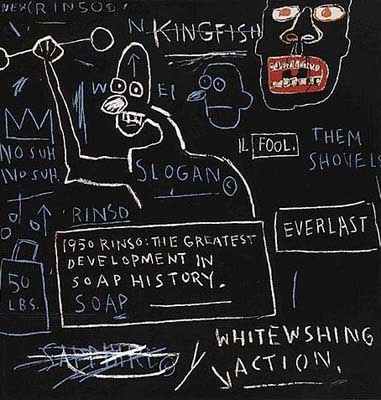 NEW(RINSO)
N KINGFISH
NO SUH
NO SUH
SLOGAN ©
IL FOOL.
THEM
SHOVELS
RINSO
EVERLAST
1950 RINSO: THE GREATEST
DEVELOPMENT IN
SOAP HISTORY.
SOAP
50
LBS.
WHITEWSHING
ACTION.